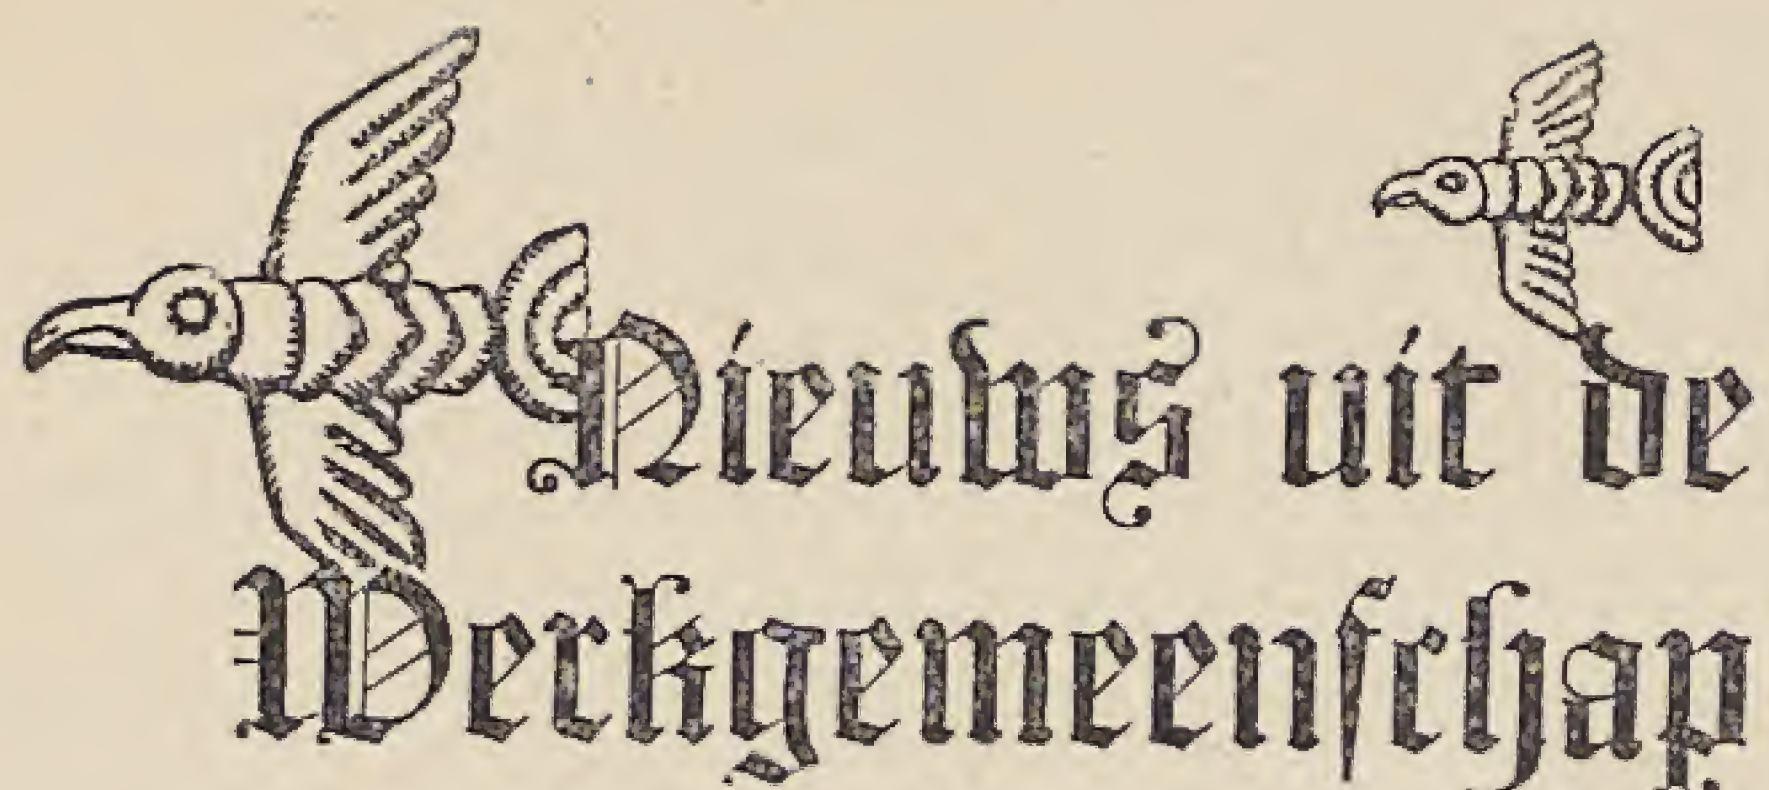 Nieuws uit de
Werkgemeenſchap